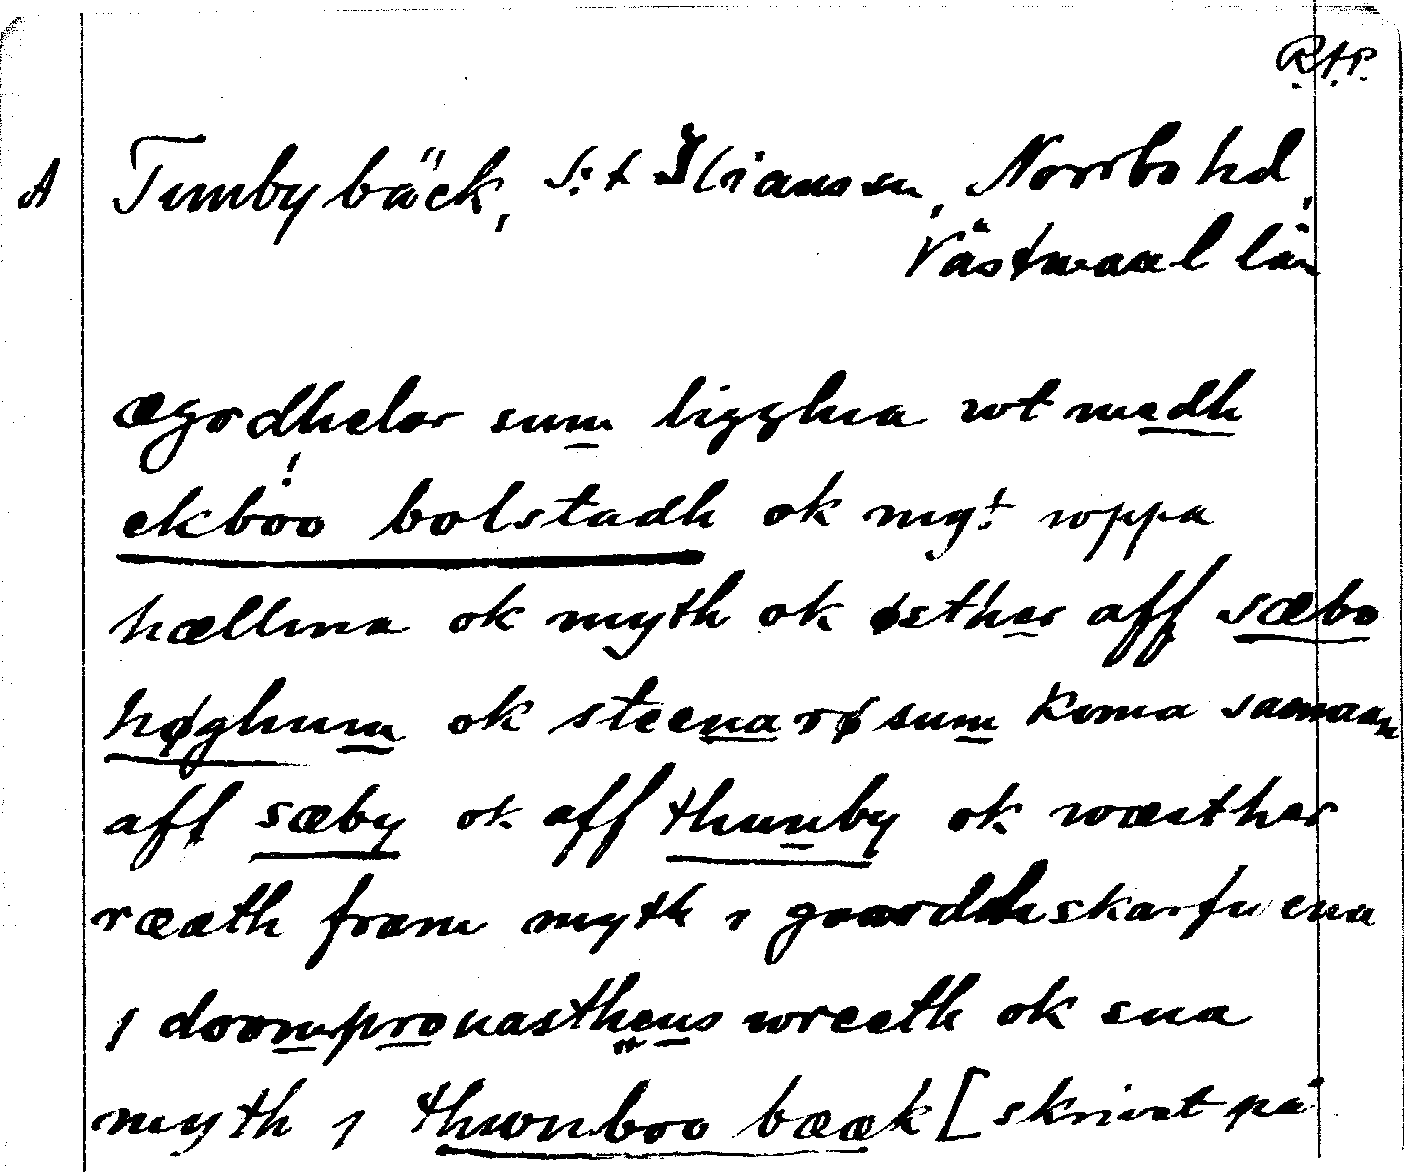 R.A.P.
A Tunbybäck, S:t Ilians sn, Norrbo hd,
Västmanl län
ægodhelar sum ligghia wt medh
ekboo! bolstadh ok myt wppa
hællina ok myth ok østher aff sæbo
høghum ok steena rø sum koma saman
aff sæby ok aff thunby ok wæsther
ræath fram myth i gaardh skarfwena
i doomprouasthens wreeth ok sua
myth i thwnboo bææk [skrivet på